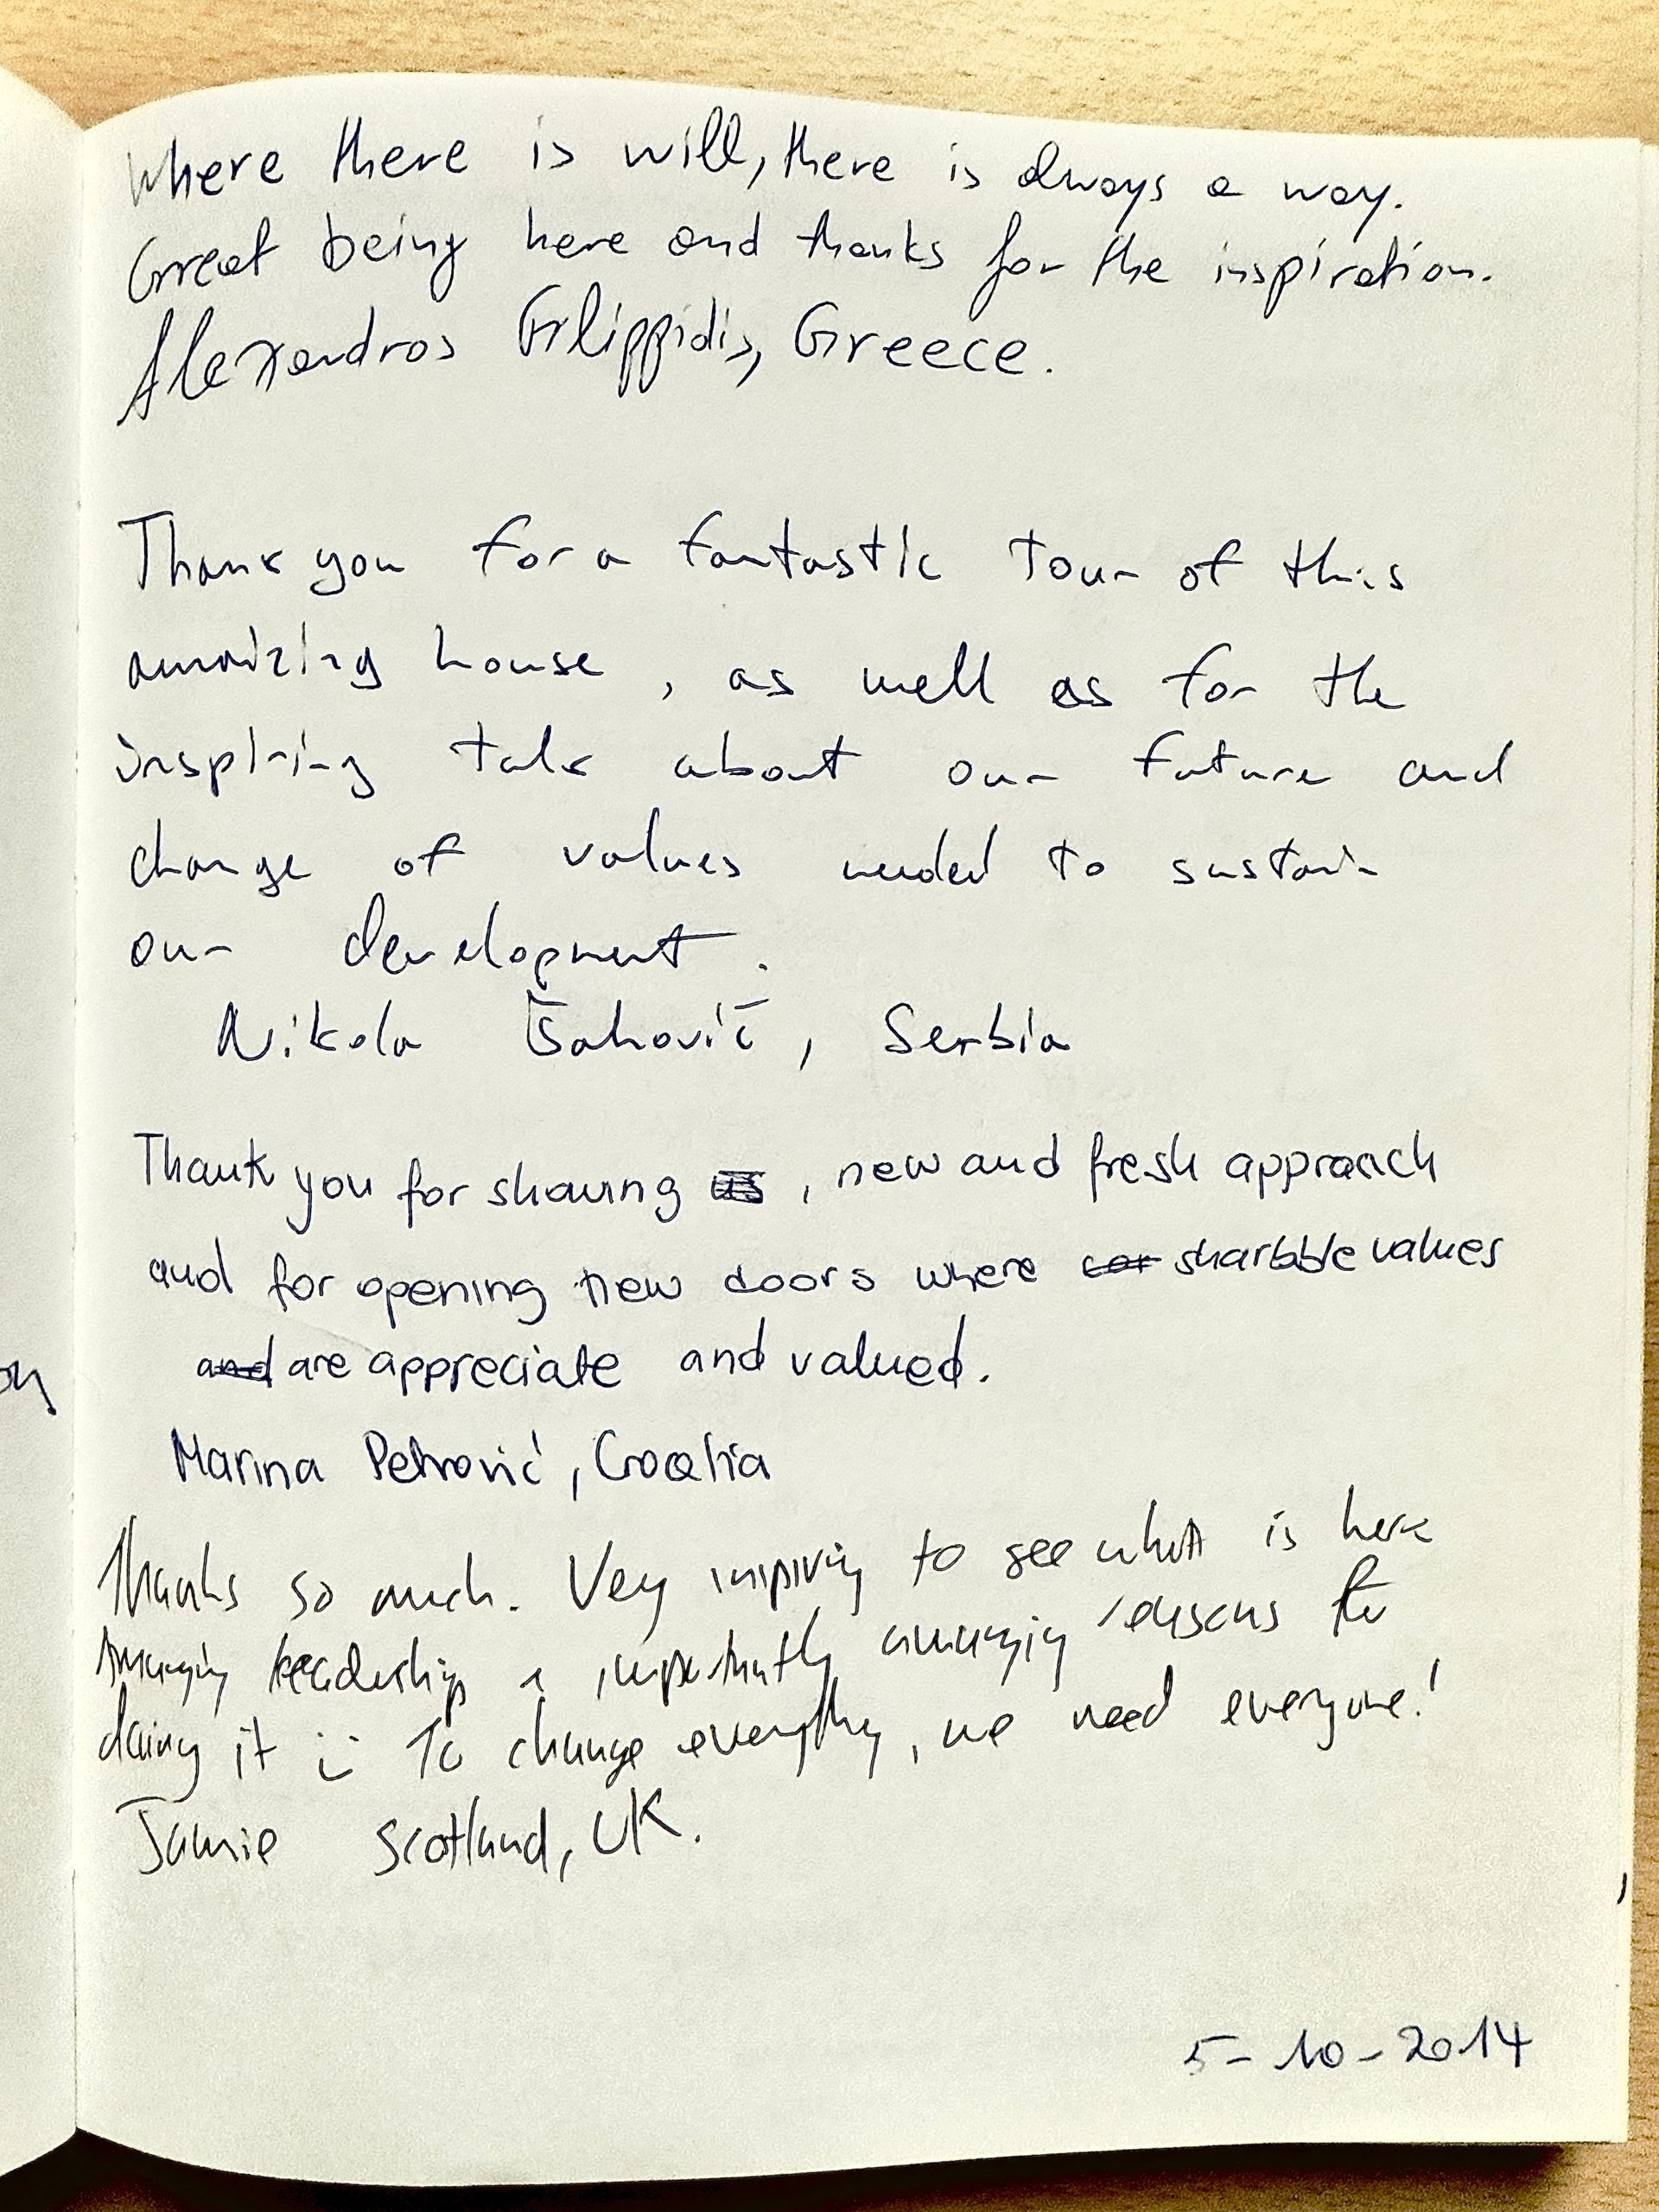 Where there is will, there is always a way.
Great being here and thanks for the inspiration.
Alexandros Filippidis, Greece.
Thank you for a fantastic tour of this
amaizing house, as well as for the
inspiring talk about our future and
change of values needed to sustain
our development.
Nikola Šahović, Serbia
Thank you for sharing us, new and fresh approach
and for opening new doors where sharable values
and are appreciate and valued.
Marina Petrović, Croatia
Thanks so much. Very inspiring to see what is here
Amazing leadership & importantly amazing reasons for
doing it :) To change everything, we need everyone!
Jamie Scotland, UK.
5-10-2014